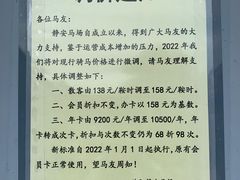 各位马友:
静安马场自成立以来，得到广大马友的大
力支持，鉴于运营成本增加的压力，2022年我
们将对现行骑马价格进行微调，请马友理解支
持，具体调整如下：
一、散客由138元/鞍时调至158元/鞍时。
二、会员折扣不变，办卡以158元为基数。
三、年卡由9200元/年调至10500/年，年
卡转成次卡，折扣与次数不变仍为68折98次。
新标准自2022年1月1日起执行，原有会
员卡正常使用，望马友周知！